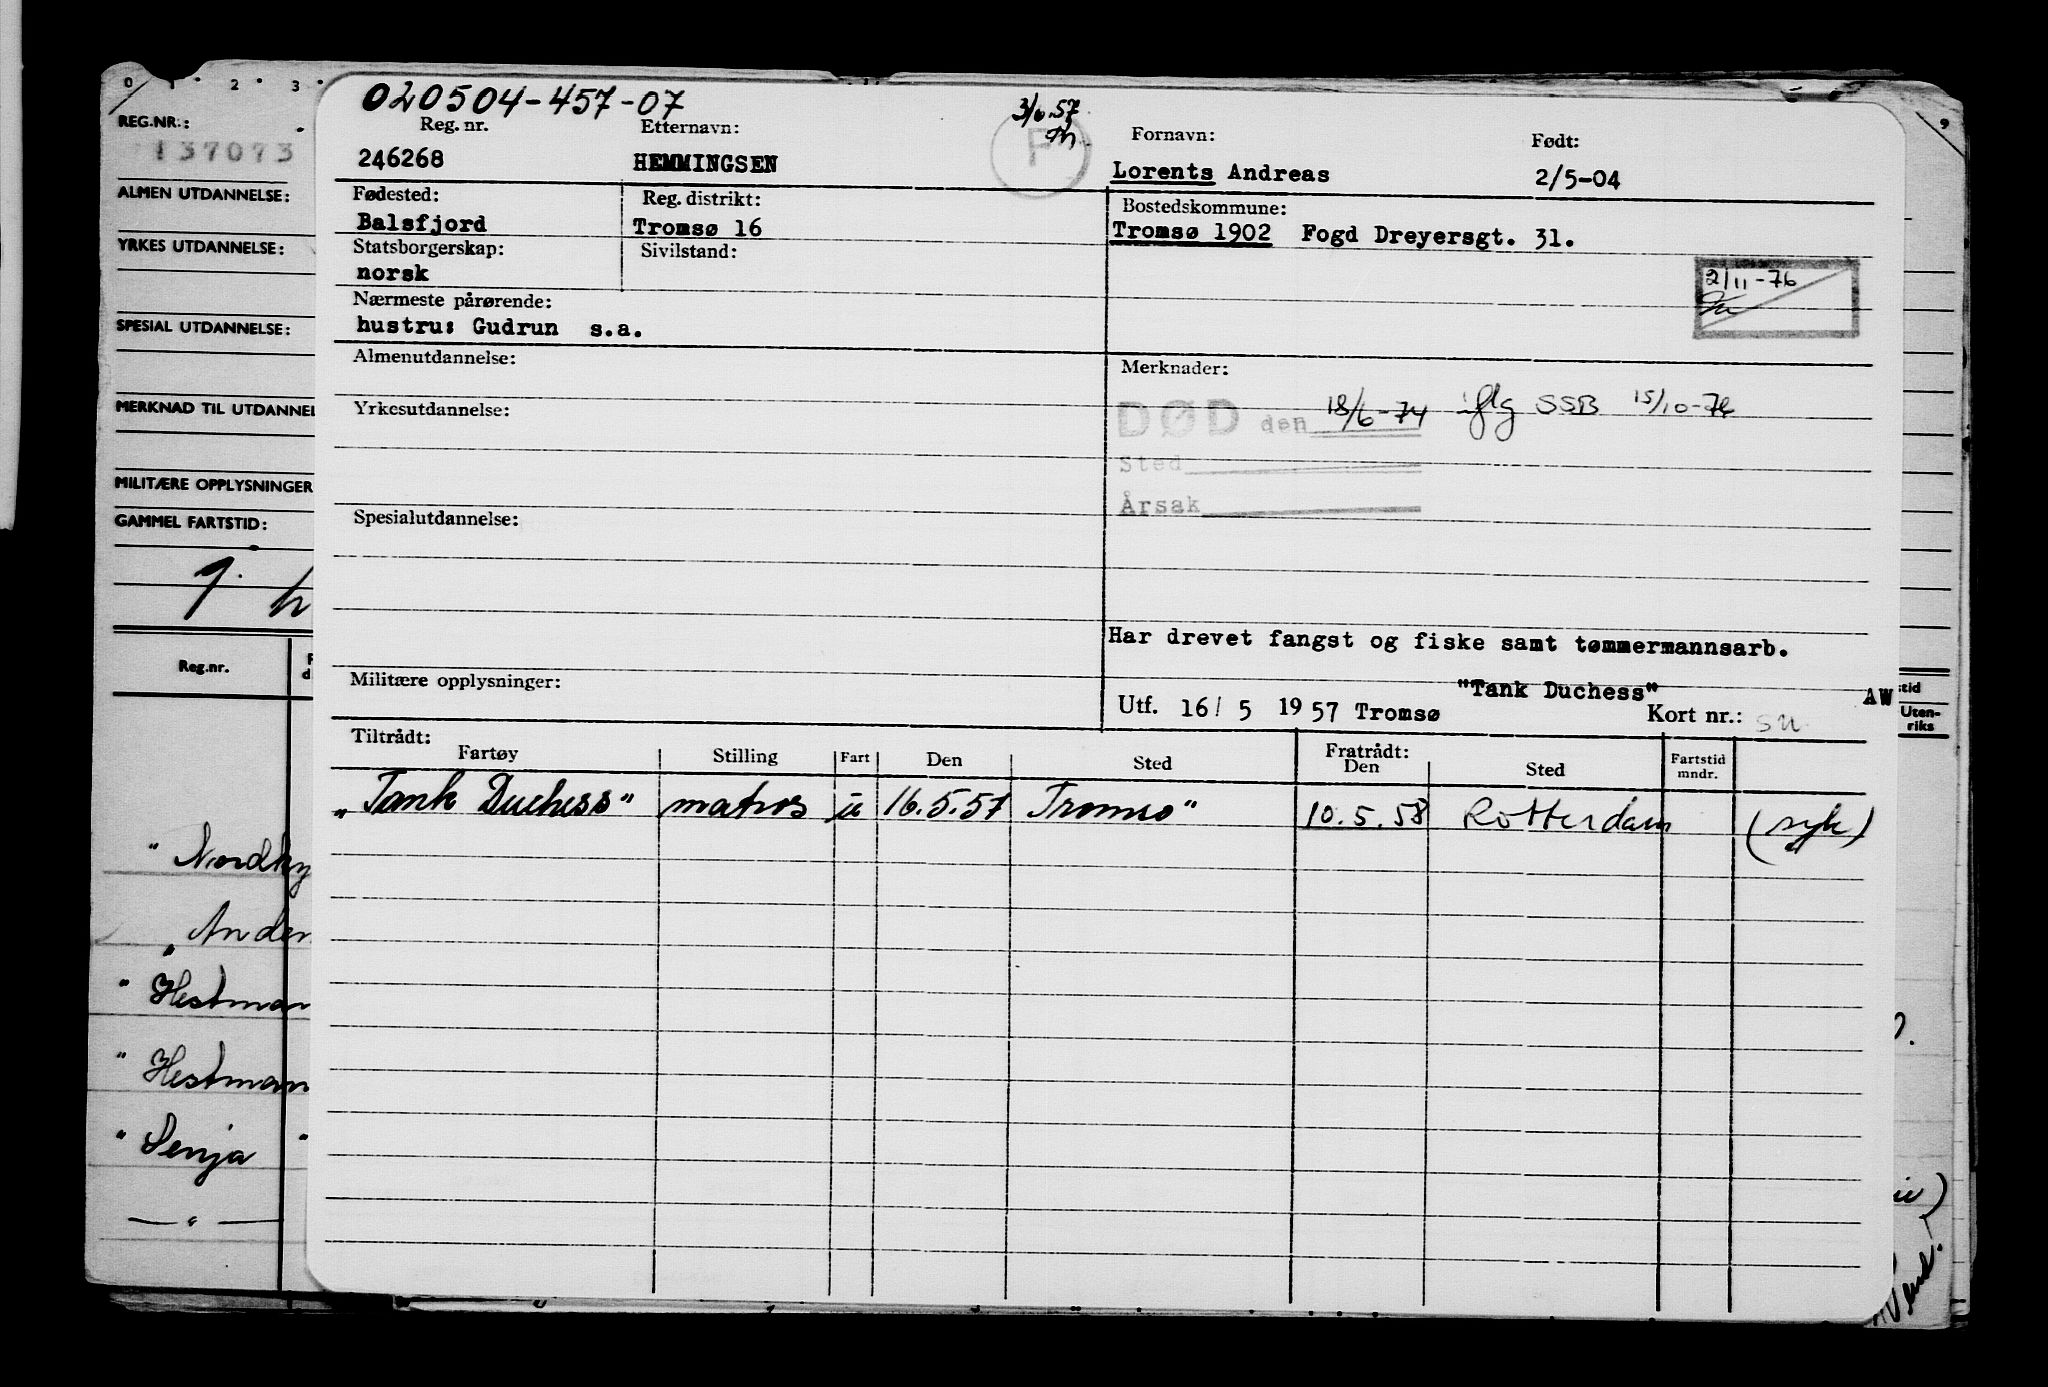 0 1 2 3 9
020504-457-07
3/6.57
REG.NR.:
137073
Reg. nr. Etternavn: Fornavn: Født:
246268 HEMMINGSEN F Lorents Andreas 2/5-04
ALMEN UTDANNELSE:
Fødested: Reg. distrikt: Bostedskommune:
Balsfjord Tromsø 16 Tromsø 1902 Fogd Dreyersgt. 31.
YRKES UTDANNELSE:
Statsborgerskap: Sivilstand:
norsk
2/11-76
Nærmeste pårørende:
SPESIAL UTDANNELSE:
hustru: Gudrun s.a.
Almenutdannelse: Merknader:
MERKNAD TIL UTDANNEL
Yrkesutdannelse:
DØD den 18/6-74 iflg SSB 15/10-76
Sted
MILITÆRE OPPLYSNINGER
Årsak
GAMMEL FARTSTID:
Spesialutdannelse:
Har drevet fangst og fiske samt tømmermannsarb.
Reg.nr.
Militære opplysninger:
"Tank Duchess" AW
Utf. 16/ 5 1957 Tromsø Kort nr.: su
tid
Uten-
riks
Tiltrådt: Fratrådt:
Fartøy Stilling Fart Den Sted Den Sted Fartstid mndr.
"Tank Duchess" matros u 16.5.57 Tromsø" 10.5.58 Rotterdam (syk)
"Nordky
"Ander
"Hestman
"Hestman
"Senja "
— " —
Vend.